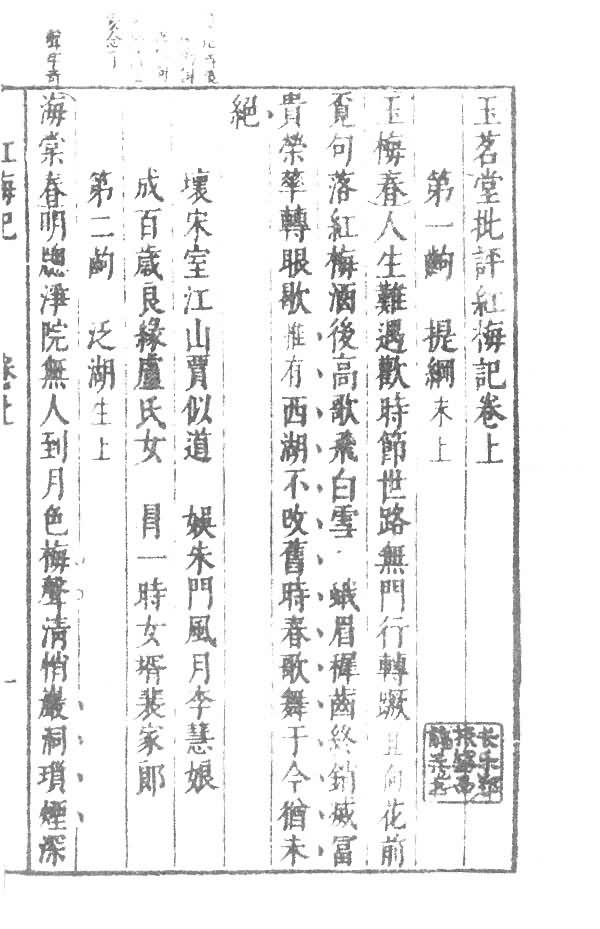 玉茗堂批評紅梅記卷上
第一齣　提綱　末上
玉梅春人生難遇歡時節世路無門行轉蹶且向花前
覓句落紅梅酒後高歌飛白雪　蛾眉稚齒終銷滅冨
貴榮華轉眼歇惟有西湖不改舊時春歌舞于今猶未
絕
壞宋室江山賈似道　娛朱門風月李慧娘
成百歲良緣盧氏女　冐一時女壻裴家郎
第二齣　泛湖　生上
海棠春明牕淨院無人到月色梅聲清悄巖祠瑣煙深
紅梅記　卷上　一